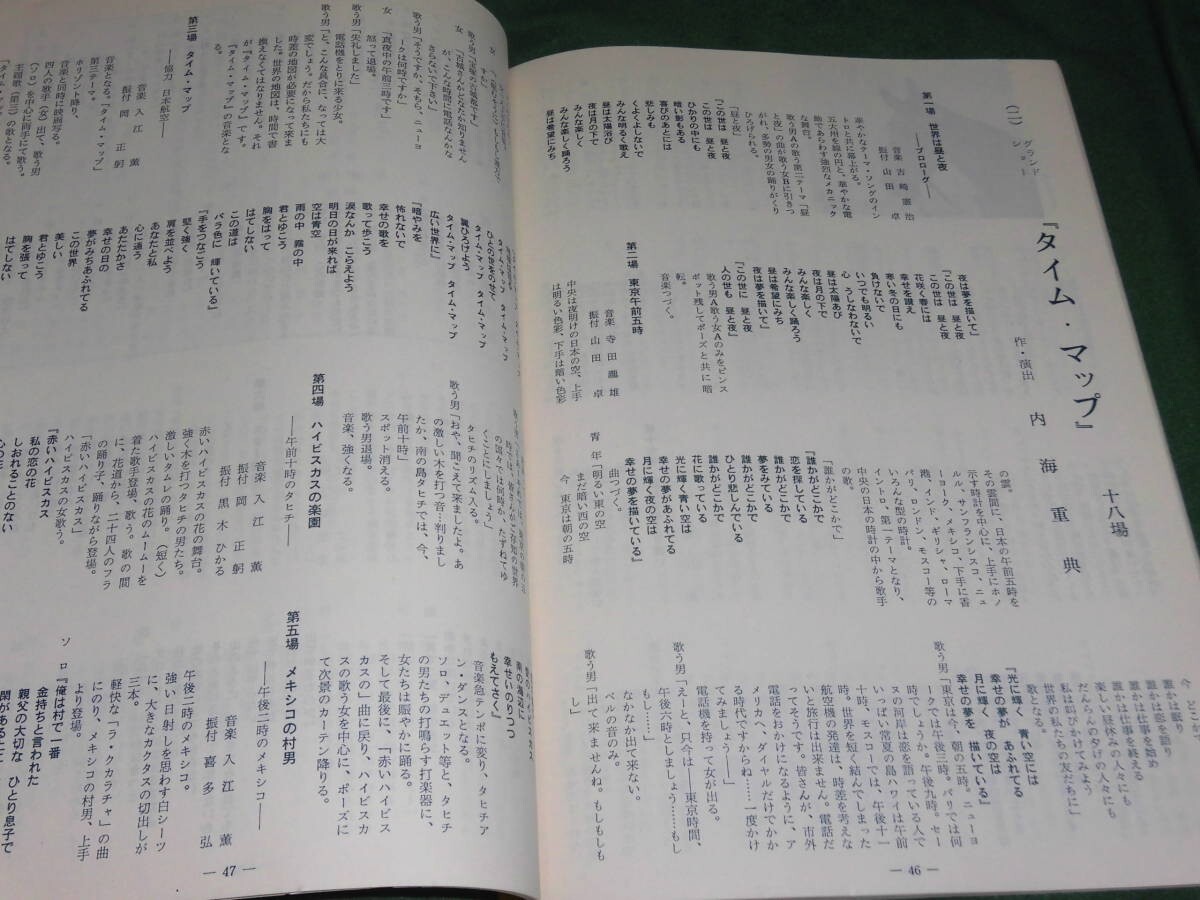 (二) グランド
ショー
『タイム・マップ』
十八場
作・演出 内海重典
第一場 世界は昼と夜
――プロローグ――
音楽 吉崎憲治
振付 山田卓
華やかなテーマ・ソングのイン
トロと共に幕上がる。
な舞台。
歌う男Aの歌う第二テーマ「昼
と夜」の曲が歌う女Bに引きつ
がれ、多勢の男女の踊りがくり
ひろげられる。
「昼と夜」
つこの世は 昼と夜
この世は 昼と夜
ひかりの中にも
暗い影もある
喜びのあとには
悲しみも
くよくよしないで
みんな明るく歌え
昼は太陽浴び
夜は月の下で
みんな楽しく
みんな楽しく踊ろう
昼は希望にみち
夜は夢を描いて」
「この世は 昼と夜
この世は 昼と夜
花咲く春には
幸せを讃え
寒い冬の日にも
負けないで
いつでも明るい
心 うしなわないで
昼は太陽あび
夜は月の下で
みんな楽しく
みんな楽しく踊ろう
昼は希望にみち
夜は夢を描いて」
「この世に 昼と夜
人の世も 昼と夜」
歌う男A歌う女Aのみをピンス
ポット残してポーズと共に暗
転。
音楽つづく。
第二場 東京午前五時
音楽 寺田瀧雄
振付 山田卓
中央は夜明けの日本の空、上手
は明るい色彩、下手は暗い色彩
の雲。
その雲間に、日本の午前五時を
示す時計を中心に、上手にホノ
ルル、サンフランシスコ、ニュ
ーヨーク、メキシコ、下手に香
港、インド、ギリシャ、ローマ
パリ、ロンドン、モスコー等の
いろんな型の時計。
イントロ、第一テーマとなり、
中央の日本の時計の中から歌手
の歌。
「誰かがどこかで」
『誰かがどこかで
恋を探している
誰かがどこかで
夢をみている
誰かがどこかで
ひとり悲しんでいる
花に歌っている
光に輝く青い空は
幸せの夢があふれてる
月に輝く夜の空は
幸せの夢を描いている』
曲つづく。
青年「明るい東の空
まだ暗い西の空
今 東京は朝の五時
誰かは眠り
誰かは恋を語り
誰かは仕事を始め
誰かは仕事を終える
楽しい昼休みの人々にも
だんらんの夕げの人々にも
私は呼びかけてみよう
世界の私たちの友だちに」
歌となる。
『光に輝く 青い空には
幸せの夢が あふれてる
月に輝く 夜の空は
幸せの夢を 描いている』
歌う男「東京は、朝の五時。ニューヨ
ークでは午後三時。パリでは何
時でしょうか。午後九時。セー
ヌの河岸は恋を語っている人で
いっぱい。常夏の島ハワイは午前
十時。モスコーでは、午後十一
時。世界を短く結んでしまった
航空機の発達は、時差を考えな
いと旅行は出来ません。電話だ
ってそうです。皆さんが、市外
電話をおかけになるように、ア
メリカへ、ダイヤルだけでかか
る時代ですからね……一度かけ
てみましょう――」
電話機を持って女が出る。
歌う男「えーと、只今は――東京時間、
午後六時としましょう……もし
もし……」
なかなか出て来ない。
ベルの音のみ。
歌う男「出て来ませんね。もしもしも
し」
― 46 ―
女
歌う男
女
が、こんな時間に電話なんかな
さらないで下さい」
歌う男「そうですか、そちら、ニューヨ
ークは何時ですか」
女「真夜中の午前三時です」
怒って退場。
歌う男「失礼しました」
電話機をとりに来る女。
歌う男「と、こんな具合に、なっては大
変でしょう。だから私たちにも
時差の地図が必要になって来ま
した。世界の地図は、時間で書
換えなくてはなりません。それ
が『タイム・マップ』です。
『タイム・マップ』の音楽とな
る。
第三場 タイム・マップ
――協力 日本航空――
音楽 入江薫
振付 岡正躬
音楽となる。『タイム・マップ』
第三テーマ。
ホリゾント降り、
音楽と同時に映画写る。
四人の歌手(女)出て、歌う男
(ソロ)を中心に両手にて歌う。
主題歌(第三)の歌となる。
『タイム・マップ
タイム・マップ タイム・マップ
タイム・マップ タイム・マップ
翼ひろげよう
広い世界に』
『暗やみを
怖れないで
幸せの歌を
歌って歩こう
涙なんか こらえよう
明日の日が来れば
空は青空
雨の中 霧の中
君とゆこう
胸をはって
はてしない
この道は
バラ色に 輝いている』
『手をつなごう
堅く強く
肩を並べよう
あなたと私
心に通う
あたたかさ
幸せの日の
夢がみちあふれてる
この世界
美しい
君とゆこう
胸を張って
はてしない
くことにしましょう」
タヒチのリズム入る。
歌う男「おや、聞こえて来ましたよ。あ
の激しい木を打つ音…判りまし
たか、南の島タヒチでは、今、
午前十時」
スポット消える。
歌う男退場。
音楽、強くなる。
第四場 ハイビスカスの楽園
――午前十時のタヒチ――
音楽 入江薫
振付 岡正躬
振付 黒木ひかる
赤いハイビスカスの花の舞台。
強く木を打つタヒチの男たち。
激しいタムレの踊り。(短く)
ハイビスカスの花のムームーを
着た歌手登場、歌う。歌の間
に、花道から、二十四人のフラ
の踊り子、踊りながら登場。
「赤いハイビスカス」
ハイビスカスの女歌う。
『赤いハイビスカス
私の恋の花
しおれることのない
南の海辺に
幸せいのりつつ
もえてさく』
音楽急テンポに変り、タヒチア
ン・ダンスとなる。
ソロ、デュエット等と、タヒチ
の男たちの打鳴らす打楽器に、
女たちは賑やかに踊る。
そして最後に、「赤いハイビス
カスの」曲に戻り、ハイビスカ
スの歌う女を中心に、ポーズに
て次景のカーテン降りる。
第五場 メキシコの村男
――午後二時のメキシコ――
音楽 入江薫
振付 喜多弘
午後二時のメキシコ。
強い日射しを思わす白シーツ
に、大きなカクタスの切出しが
三本。
軽快な「ラ・クカラチャ」の曲
にのり、メキシコの村男、上手
より登場。
ソロ『俺は村で一番
金持ちと言われた
親父の大切な ひとり息子で
― 47 ―